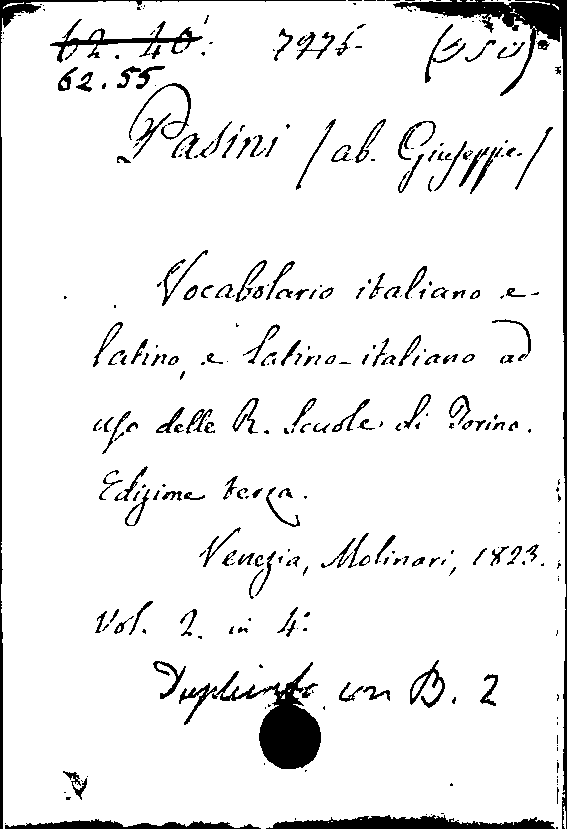 62. 40. 7975 (250)
62.55
Pasini / ab. Giuseppe /
Vocabolario italiano e
latino, e latino-italiano ad
uso delle R. Scuole di Torino.
Edizione terza.
Venezia, Molinari, 1823.
Vol. 2. in 4.
Duplicato con B. 2